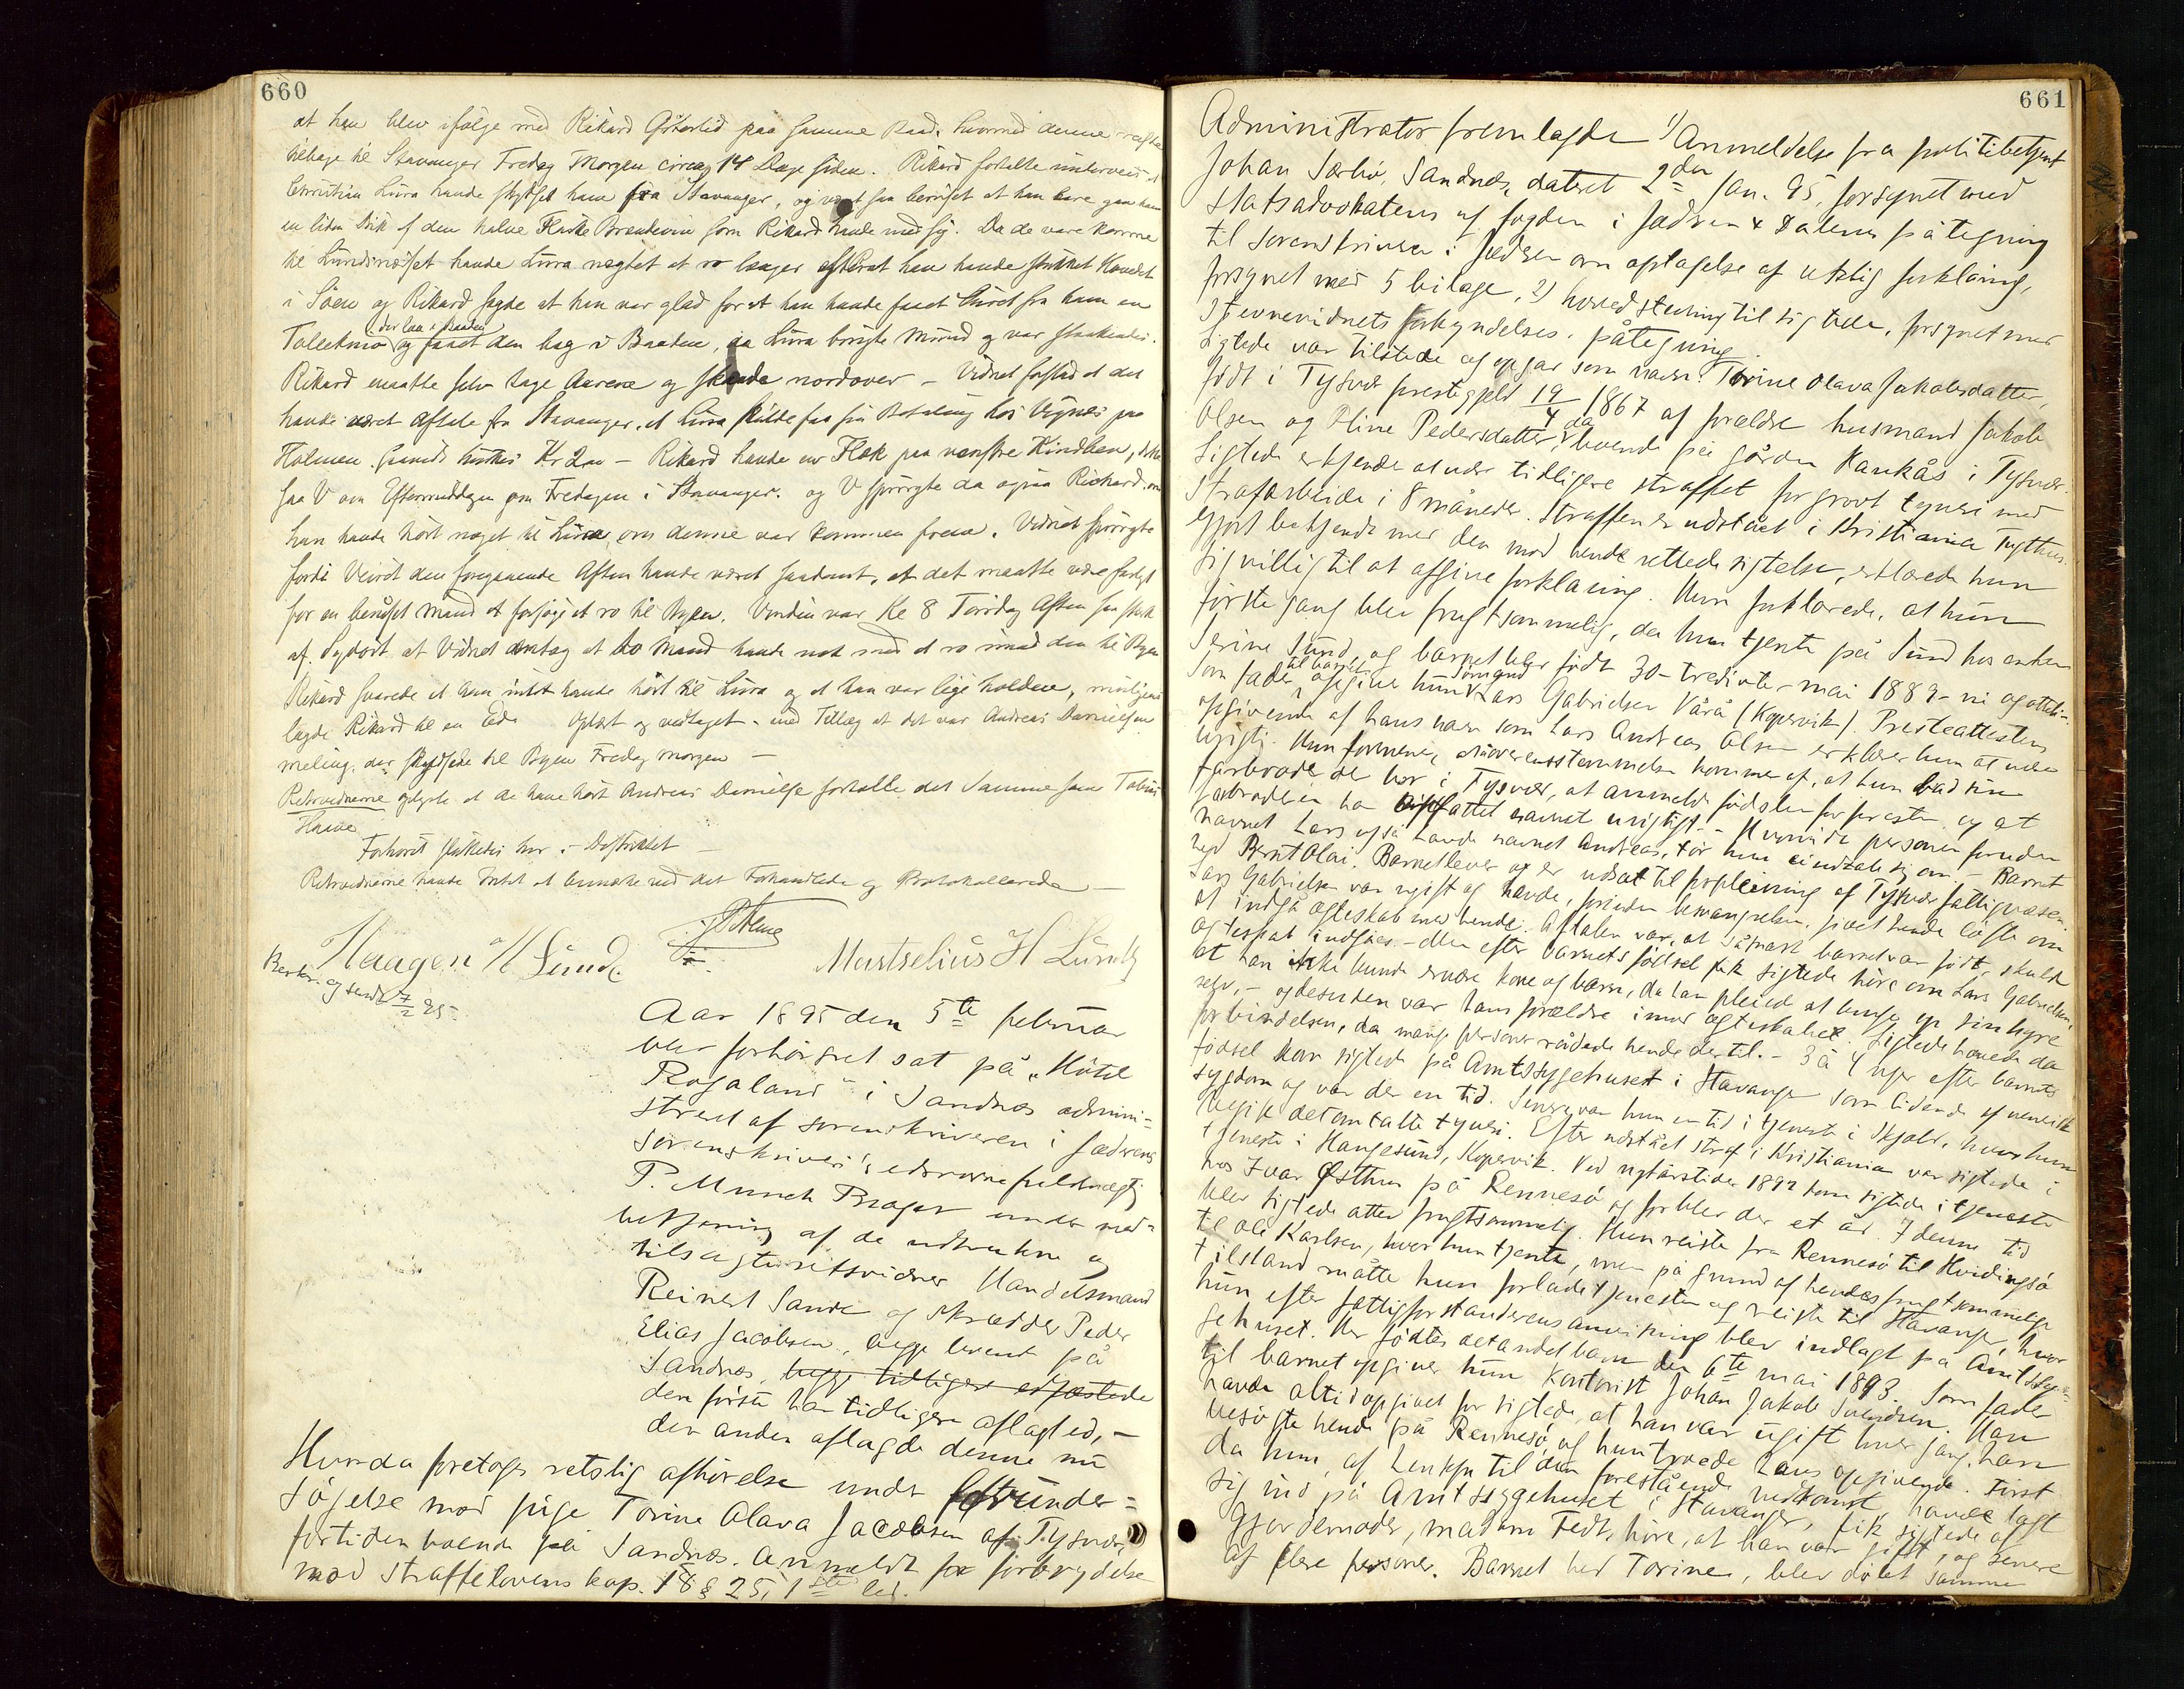 660
at han blev ifølge med Rikard Gitterlid paa samme Baad, hvormed denne reiste
tilbage til Stavanger Fredag Morgen circa 14 Dage siden. Rikard fortalte underveis at
Christian Lura havde skydset ham fra Stavanger, og været saa beruset at han bare gav ham
en liden Drik af den halve Flaske Brændevin som Rikard havde med sig. Da de vare komne
til Lundsneset havde Lura nægtet at ro længer efterat han havde stukket Hovedet
i Søen og Rikard sagde at han var glad for at han havde faaet Kniven fra ham en
Tollekniv der laa i Baaden og faaet den bag i Baaden, da Lura brugte Mund og var
Rikard maatte selv tage Aarene og nordover – Vidnet forstod at det
havde været Aftale fra Stavanger, at Lura skulde faa sin Betaling hos Vignes paa
Holmen. Kr 2 – Rikard havde en Flæk paa venstre Kindben, dette
saa V om Eftermiddagen om Fredagen i Stavanger. og V spurgte da ogsaa Richard om
han havde hørt noget til Lura, om denne var kommen frem. Vidnet spurgte
fordi Veiret den foregaaende Aften havde været saadant, at det maatte være farligt
for en beruset Mand at forsøge at ro til Byen. Vinden var Kl 8 Torsdag Aften saa stærk
af Sydost at Vidnet antog at to Mand havde nok med at ro imod den til Byen
Rikard svarede at han intet havde hørt til Lura og at han var lige holden,
lagde Rikard til en Ed. Oplæst og vedtaget – med Tillæg at det var Andreas Danielsen
Meling, der skydsede til Byen Fredag Morgen –
Retsvidnerne oplyste at de have hørt Andreas Danielsen fortalte det Samme som Tobias
Haave
Forhøret sluttedes her i Distriktet –
Retsvidnerne havde Intet at bemærke ved det Forhandlede og Protokollerede –
Haagen H Lunde
Martselius H Lunde
Beskr. og sendt 7/2 95.
Aar 1895 den 5te februar
blev forhørsret sat på „Hôtel
Rogaland“ i Sandnæs admini-
streret af sorenskriveren i Jæderens
sorenskriveri's edsvorne fuldmægtig
P. Munch Brager under med-
betjening af de udtrukne og
tilsagte retsvidner Handelsmand
Reinert Sande og Skrædder Peder
Elias Jacobsen, begge boende på
Sandnæs, begge tidligere edfæstede
den første har tidligere aflagt ed, –
den anden aflagde denne nu
Hvorda foretoges retslig afhørelse under efterunder-
søgelse mod pige Torine Olava Jacobsen af Tysvær,
fortiden boende på Sandnæs. Anmeldt for forbrydelse
mod straffelovens kap. 18 § 25, 1ste led.
661
Administrator fremlagde 1) Anmeldelse fra politibetjent
Johan Særbø, Sandnæs, dateret 2den Jan. 95, forsynet med
statsadvokatens af fogden i Jædren & Dalerne påtegning
til Sorenskriveren i Jædren om optagelse af retslig forklaring,
forsynet med 5 bilage, 2) hovedstevning til sigtede, forsynet med
stevnevidnets forkyndelses-påtegning.
Sigtede var tilstede og opgav som navn: Torine Olava Jakobsdatter,
født i Tysvær prestegjeld 19/4 1867 af forældre husmand Jakob
Olsen og Eline Pedersdatter, da boende på gården Kaukås i Tysvær.
Sigtede erkjende at være tidligere straffet for grovt tyveri med
Strafarbeide i 8 måneder. Straffen er udstået i Kristiania Tugthus.
Gjort bekjendt med den mod hende rettede sigtelse, erklærede hun
sig villig til at afgive forklaring. Hun forklarede, at hun
første gang blev frugtsommelig, da hun tjente på Sund hos enken
Serine Sund, og barnet blev født 30-tredivte-mai 1889-ni og otteti-.
Som fader til barnet opgiver hun Sømand Lars Gabrielsen Vårå (Kopervik). Presteattestens
opgivende af hans navn som Lars Andreas Olsen erklærer hun at være
urigtig. Hun formener, uoverensstemmelsen kommer af, at hun bad sin
farbroder der bor i Tysvær, at anmelde fødslen for presten og at
farbroderen har opfattet navnet urigtigt. – Hvorvidt personen foruden
navnet Lars også havde navnet Andreas, tør hun ei udtale sig om. – Barnet
hed Berntolai. Barnet lever og er udsat til forpleining af Tysvær fattigvæsen.
Lars Gabrielsen var ugift og havde, førinden besvangrelsen, givet hende løfte om
at indgå ægteskab med hende. Aftalen var, at såsnart barnet var født, skulde
ægteskab indgåes. – Men efter barnets fødsel fik sigtede høre om Lars Gabrielsen,
at han ikke kunde ernære kone og barn, da han pleied at bruge op sin hyre
selv, – og desuden var hans forældre imod ægteskabet. Sigtede hævede da
forbindelsen, da mange personer rådede hende dertil. – 3 à 4 uger efter barnets
fødsel kom sigtede på Amtssygehuset i Stavanger som lidende af venerisk
sygdom og var der en tid. Senere var hun en tid i tjeneste i Skjold, hvor hun
begik det omtalte tyveri. Efter udstået straf i Kristiania var sigtede i
tjeneste i Haugesund, Kopervik. Ved nytårstider 1892 kom sigtede i tjeneste
hos Ivar Østhus på Rennesø og forblev der et år. I denne tid
blev sigtede atter frugtsommelig. Hun reiste fra Rennesø til Hvidingsø
til Ole Karlsen, hvor hun tjente, men på grund af hendes frugtsommelige
tilstand måtte hun forlade tjenesten og reiste til Stavanger, hvor
hun efter fattigforstanderens anvisning blev indlagt på Amtssyge-
gehuset. Her fødtes det andet barn den 6te mai 1893. Som fader
til barnet opgiver hun Kontorist Johan Jakob Svendsen. Han
havde altid opgivet for sigtede, at han var ugift hver gang, han
besøgte hende på Rennesø, og hun troede hans opgivende. Først
da hun, af hensyn til den forestående nedkomst havde lagt
sig ind på Amtssygehuset i Stavanger, fik sigtede af
Gjordemoder, madam Tedt, høre, at han var gift, og senere
af flere personer. Barnet hed Torine, blev døbt samme